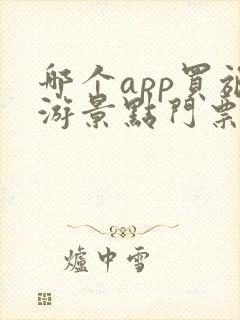 哪个app買旅
游景點門票
爐中雪